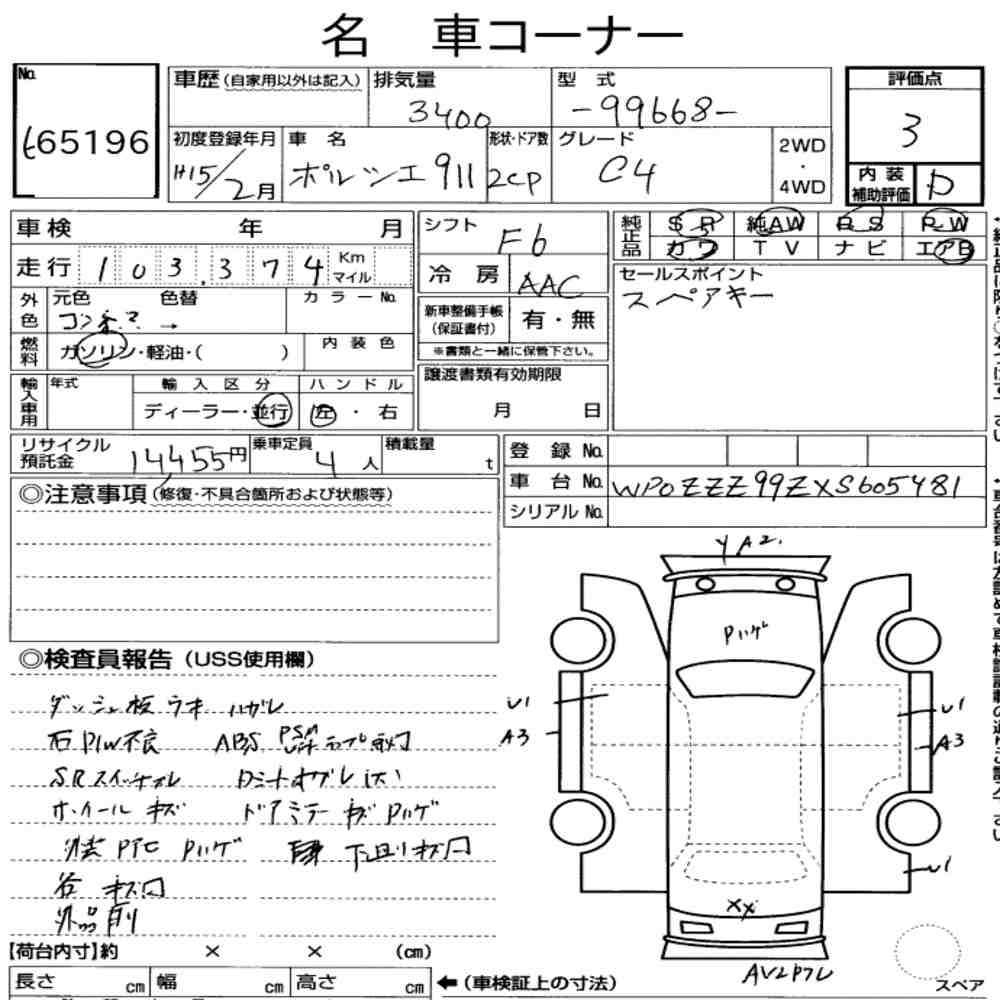 名 車コーナー
No.
65196
車歴 (自家用以外は記入)
排気量
3400
型 式
-99668-
評価点
3
初度登録年月
H15/2月
車 名
ポルシェ 911
形状・ドア数
2CP
グレード
C4
2WD
・
4WD
内 装
補助評価
D
車検 年 月
走行 103,374 Km マイル
外色 元色 色替
カラーNo.
燃料 ガソリン・軽油・( )
内 装 色
輸入車用 年式
輸 入 区 分
ディーラー・並行
ハ ン ド ル
左 ・ 右
シフト
F6
冷 房
AAC
新車整備手帳
(保証書付)
有・無
※書類と一緒に保管下さい。
譲渡書類有効期限
月 日
純正品 S R 純AW P S P W
カワ T V ナ ビ エアB
セールスポイント
スペアキー
リサイクル
預託金
14455円
乗車定員
4 人
積載量
t
登 録 No.
車 台 No. WP0ZZZ99ZXS605481
シリアル No.
◎注意事項 (修復・不具合箇所および状態等)
◎検査員報告 (USS使用欄)
ダッシュ板ウキ ハガレ
右P/W不良 ABS PSM ランプ点灯
SRスイッチ
ホイール キズ ドアミラー キズ Pハゲ
外装 Pハゲ 下廻りキズ凹
谷 キズ凹
外品
YA2.
Pハゲ
U1
A3
U1
A3
U1
XX
スペア
【荷台内寸】約 × × (cm)
長さ cm 幅 cm 高さ cm
← (車検証上の寸法)